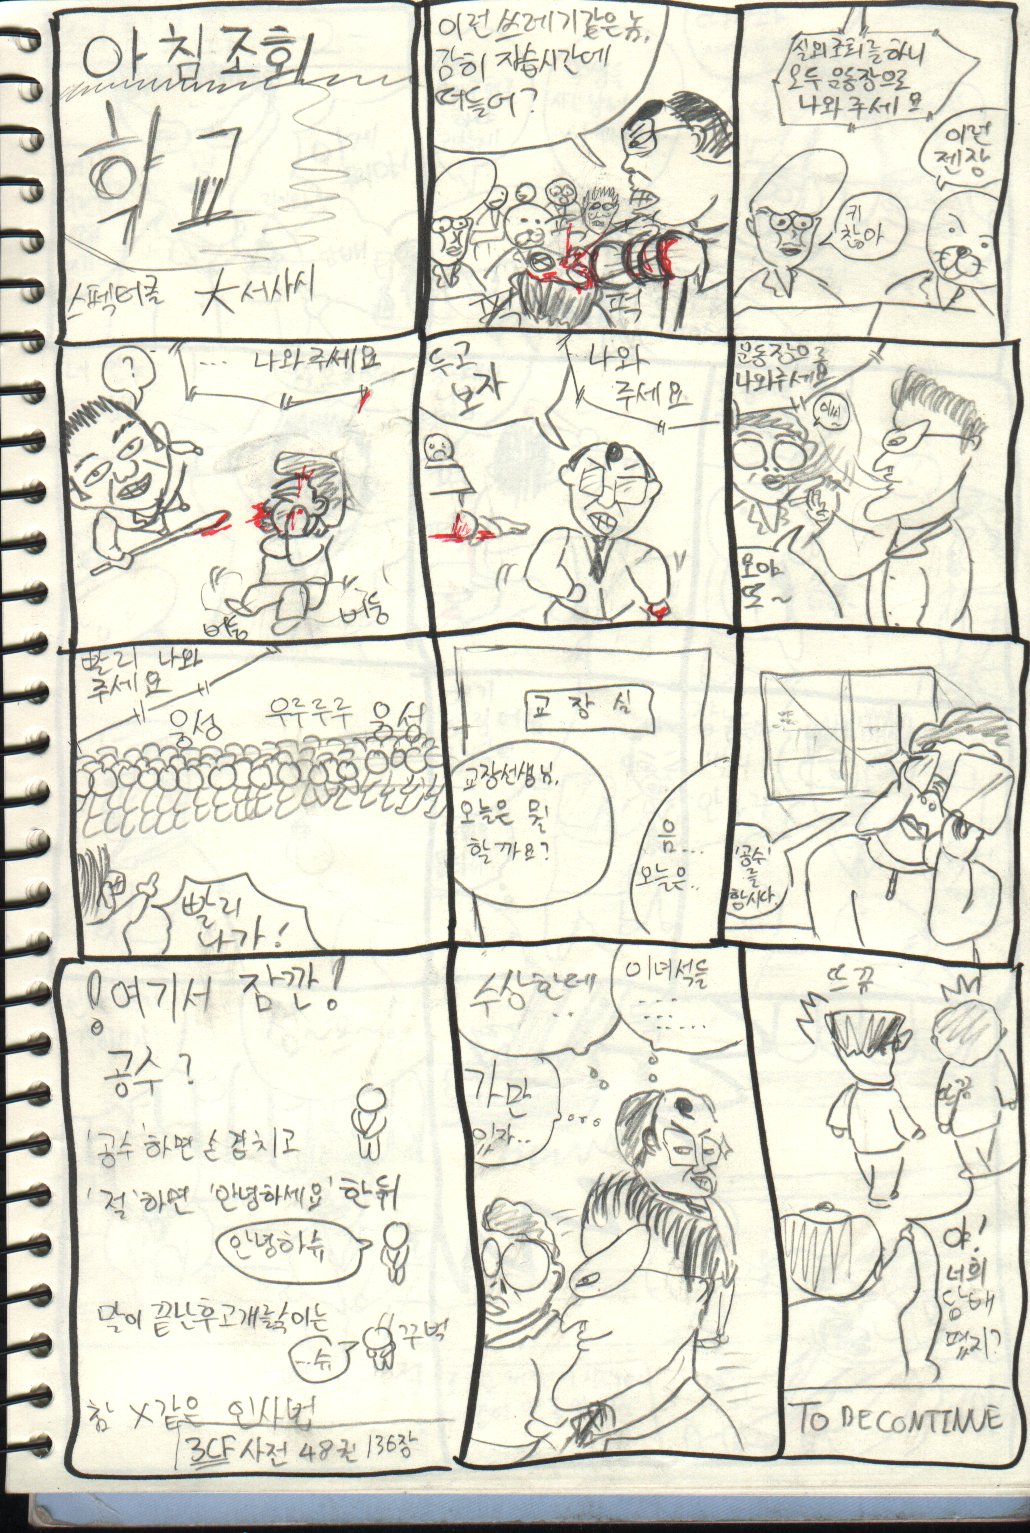 아침조회
학교
스펙터클 大서사시
이런 쓰레기같은놈,
감히 자습시간에
떠들어?
퍽
퍽
퍽
실외조회를하니
모두 운동장으로
나와주세요
이런
젠장
키
찮아
?
... 나와주세요
버둥
버둥
두고
보자
나와
주세요
운동장으로
나와주세요
이씨~
오야
또~
빨리 나와
주세요
웅성 우루루루 웅성
빨리
나가!
교장실
교장선생님,
오늘은 뭘
할까요?
음...
오늘은..
'공수'
를
합시다.
!여기서 잠깐!
공수?
'공수'하면 손 겹치고
'절'하면 '안녕하세요'한뒤
안녕하슈
말이 끝난후고개를숙이는
...슈
꾸벅
참 X같은 인사법
3CF사전 48권 136장
수상한데
..
이녀석들
....
가만
있자..
뜨끔
뜨끔
야!
너희
담배
폈지?
TO DECONTINUE